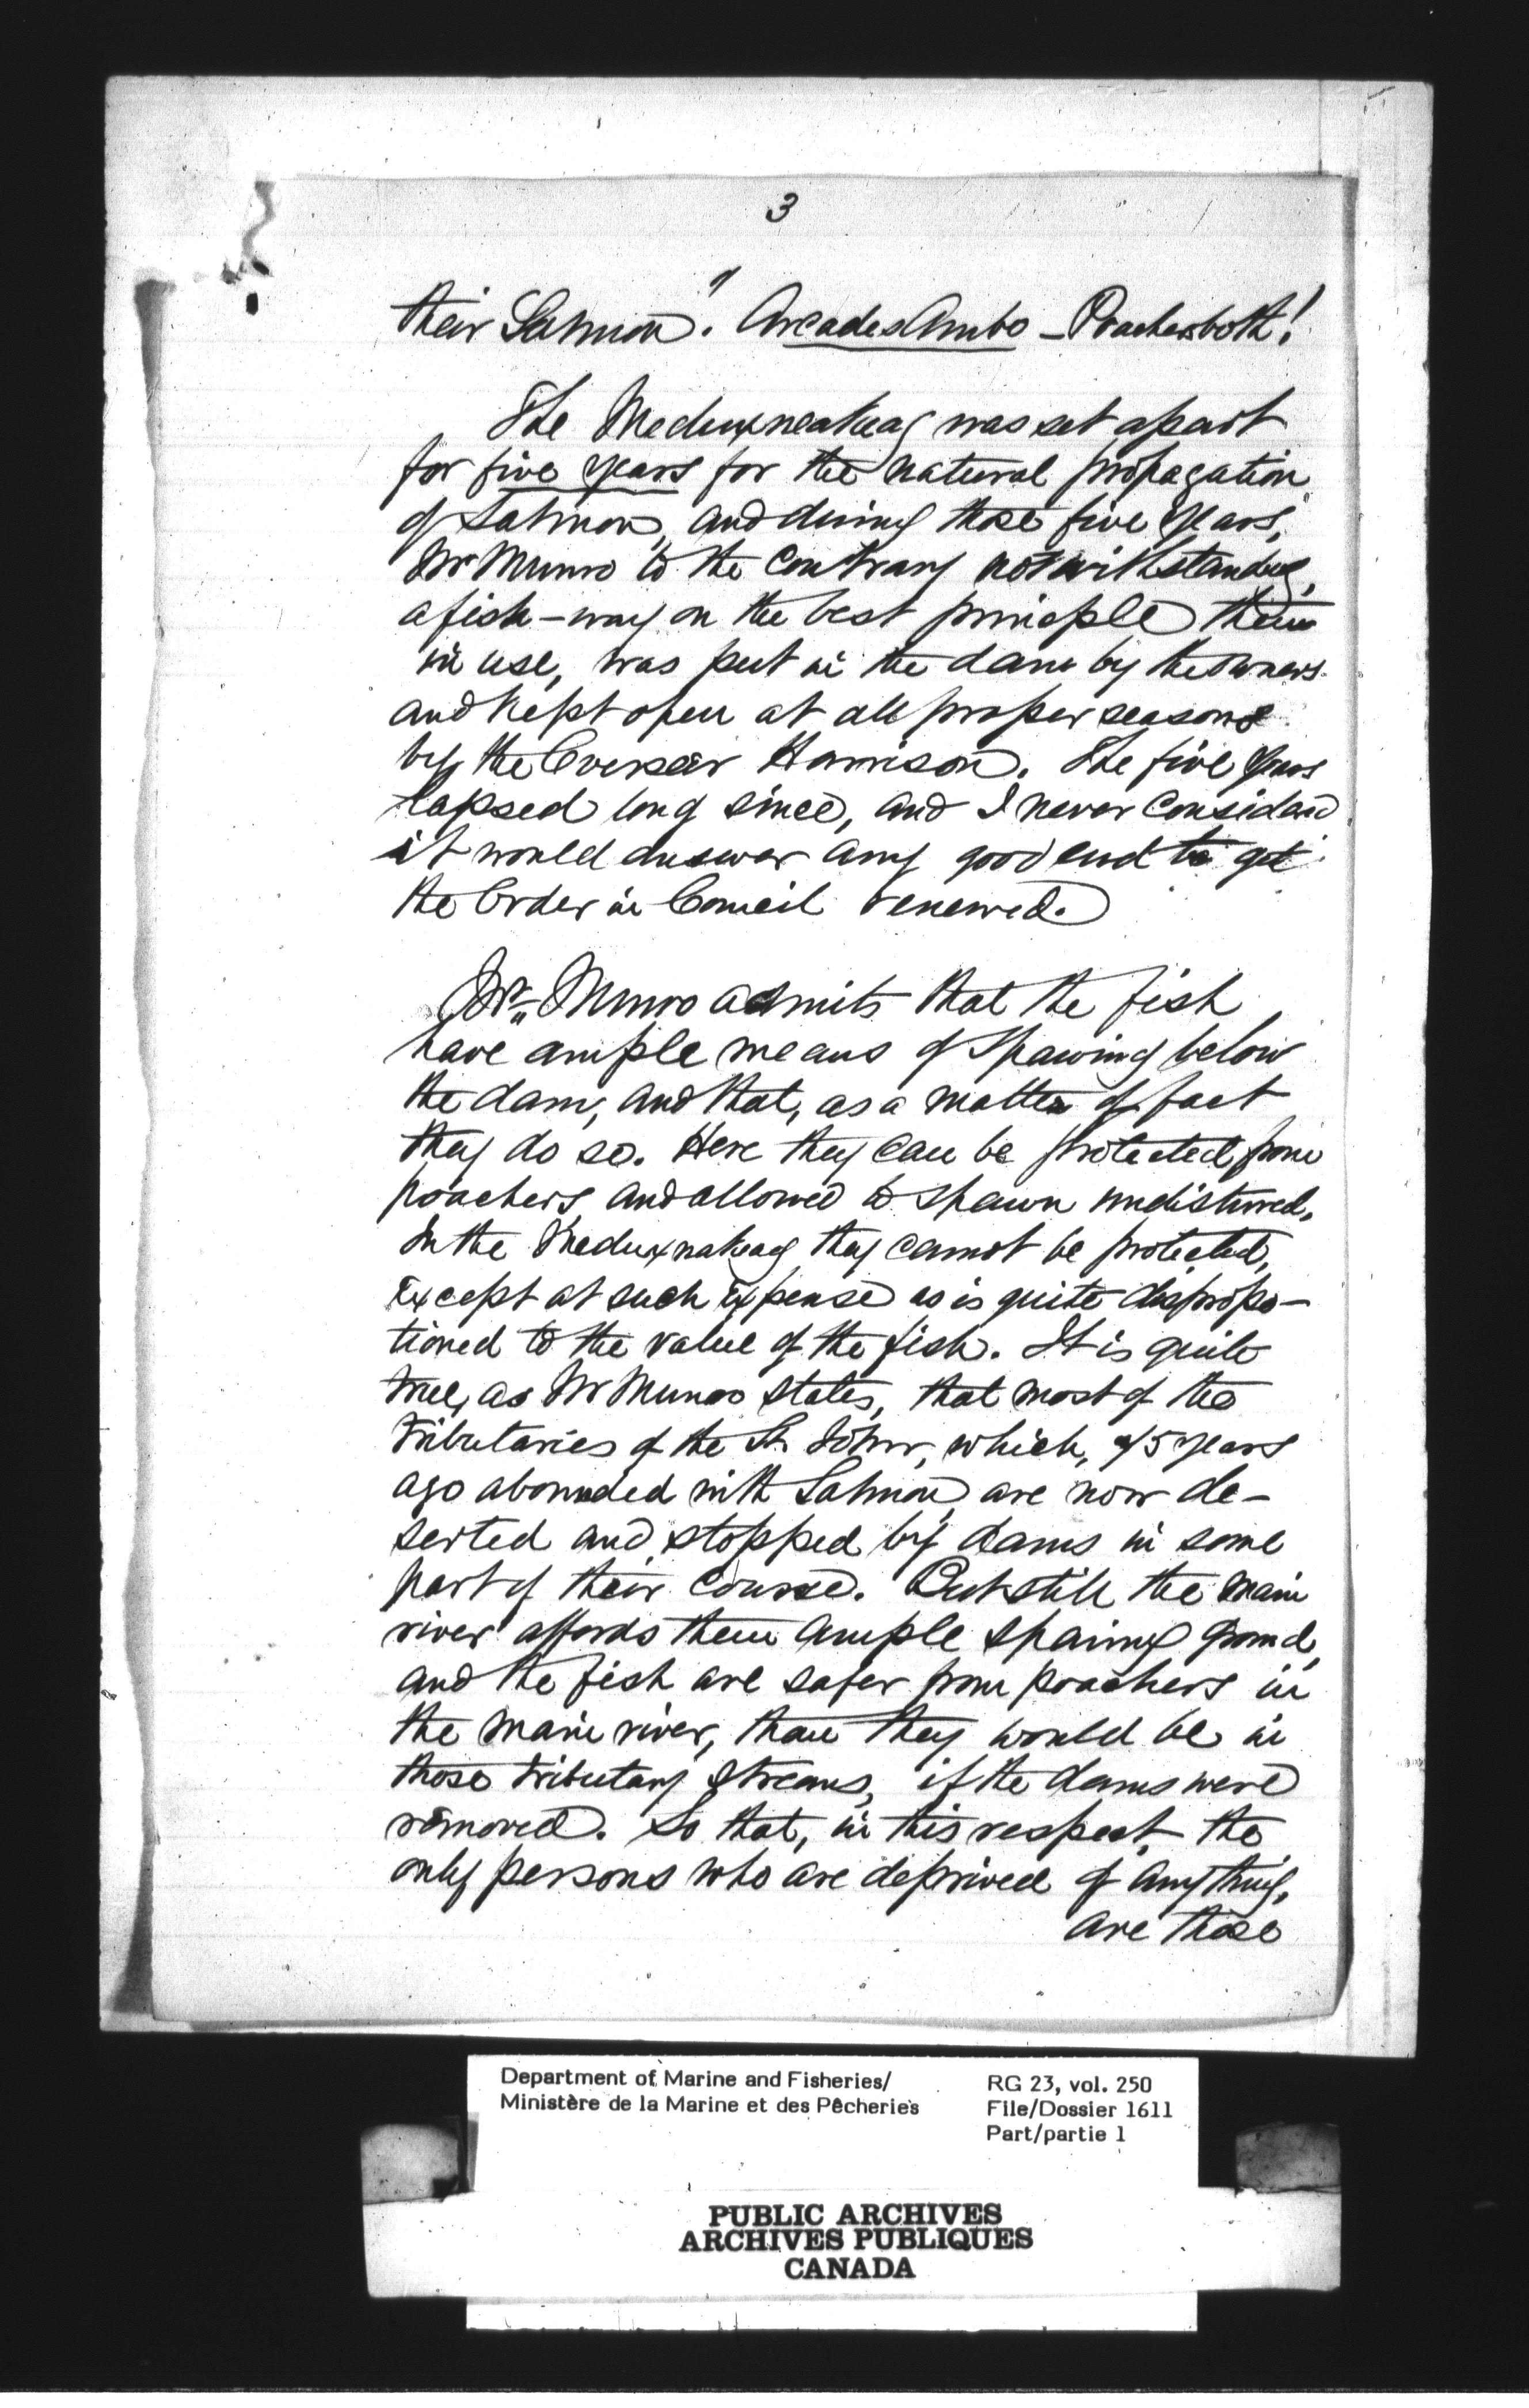 3
their Salmon." Arcades Ambo – Poachers both!
The Meduxneakeag was set apart
for five years for the natural propagation
of Salmon, and during those five years,
Mr Munro to the contrary notwithstanding,
a fish-way on the best principle then
in use, was put in the dam by the owners
and kept open at all proper seasons
by the Overseer Harrison. The five years
lapsed long since, and I never considered
it would answer any good end to get
the Order in Council renewed.
Mr. Munro admits that the fish
have ample means of spawing below
the dam, and that, as a matter of fact
they do so. Here they can be protected from
poachers and allowed to spawn undisturred.
In the Meduxnakeag they cannot be protected,
except at such expense as is quite dispropo-
tioned to the value of the fish. It is quite
true, as Mr Munro states, that most of the
tributaries of the St. John, which, 75 years
ago abounded with Salmon, are now de-
serted and stopped by dams in some
part of their course. But still the main
river affords them ample spaing ground,
and the fish are safer from poachers in
the main river, than they would be in
those tributary streams, if the dams were
removed. So that, in this respect the
only persons who are deprived of anything,
are those
Department of Marine and Fisheries/
Ministère de la Marine et des Pêcheries
RG 23, vol. 250
File/Dossier 1611
Part/partie 1
PUBLIC ARCHIVES
ARCHIVES PUBLIQUES
CANADA